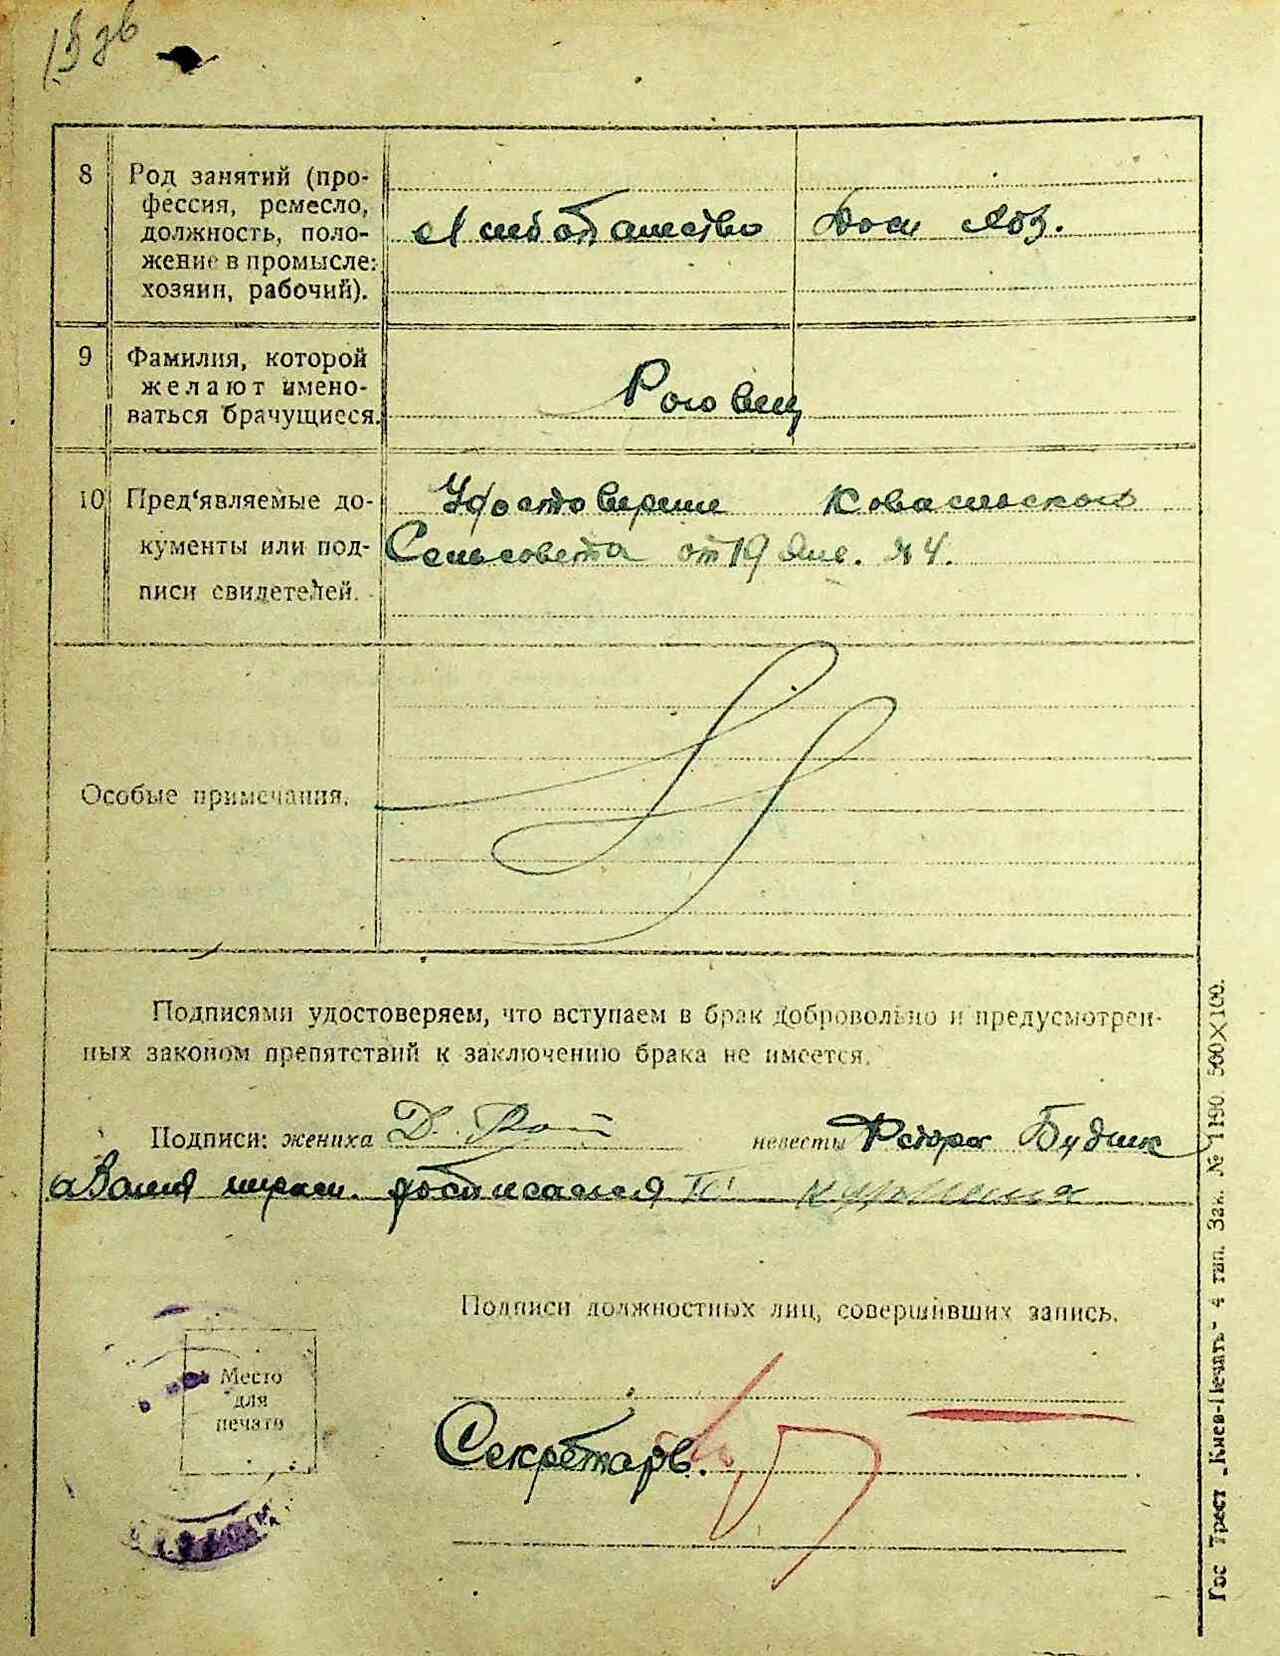 8 Род занятий (про-
фессия, ремесло,
должность, поло-
жение в промысле:
хозяин, рабочий).
Хлебопашество Дом хоз.
9 Фамилия, которой
желают имено-
ваться брачущиеся.
Роговец
10 Пред'являемые до-
кументы или под-
писи свидетелей.
Удостоверение Ковальского
Сельсовета от 19 Янв. № 4.
Особые примечания.
Подписями удостоверяем, что вступаем в брак добровольно и предусмотрен-
ных законом препятствий к заключению брака не имеется.
Подписи: жениха Д. невесты Федора Будник
росписался
Подписи должностных лиц, совершивших запись.
Место
для
печати
Секретарь.
Гос Трест „Киев-Печать" 4 тип. Зак. № 1190. 500×100.